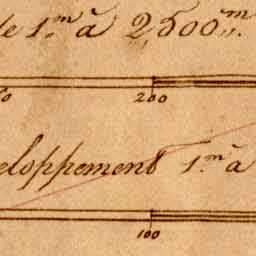 de 1.m à 2,500m.
0 200
eloppement 1.m à
100